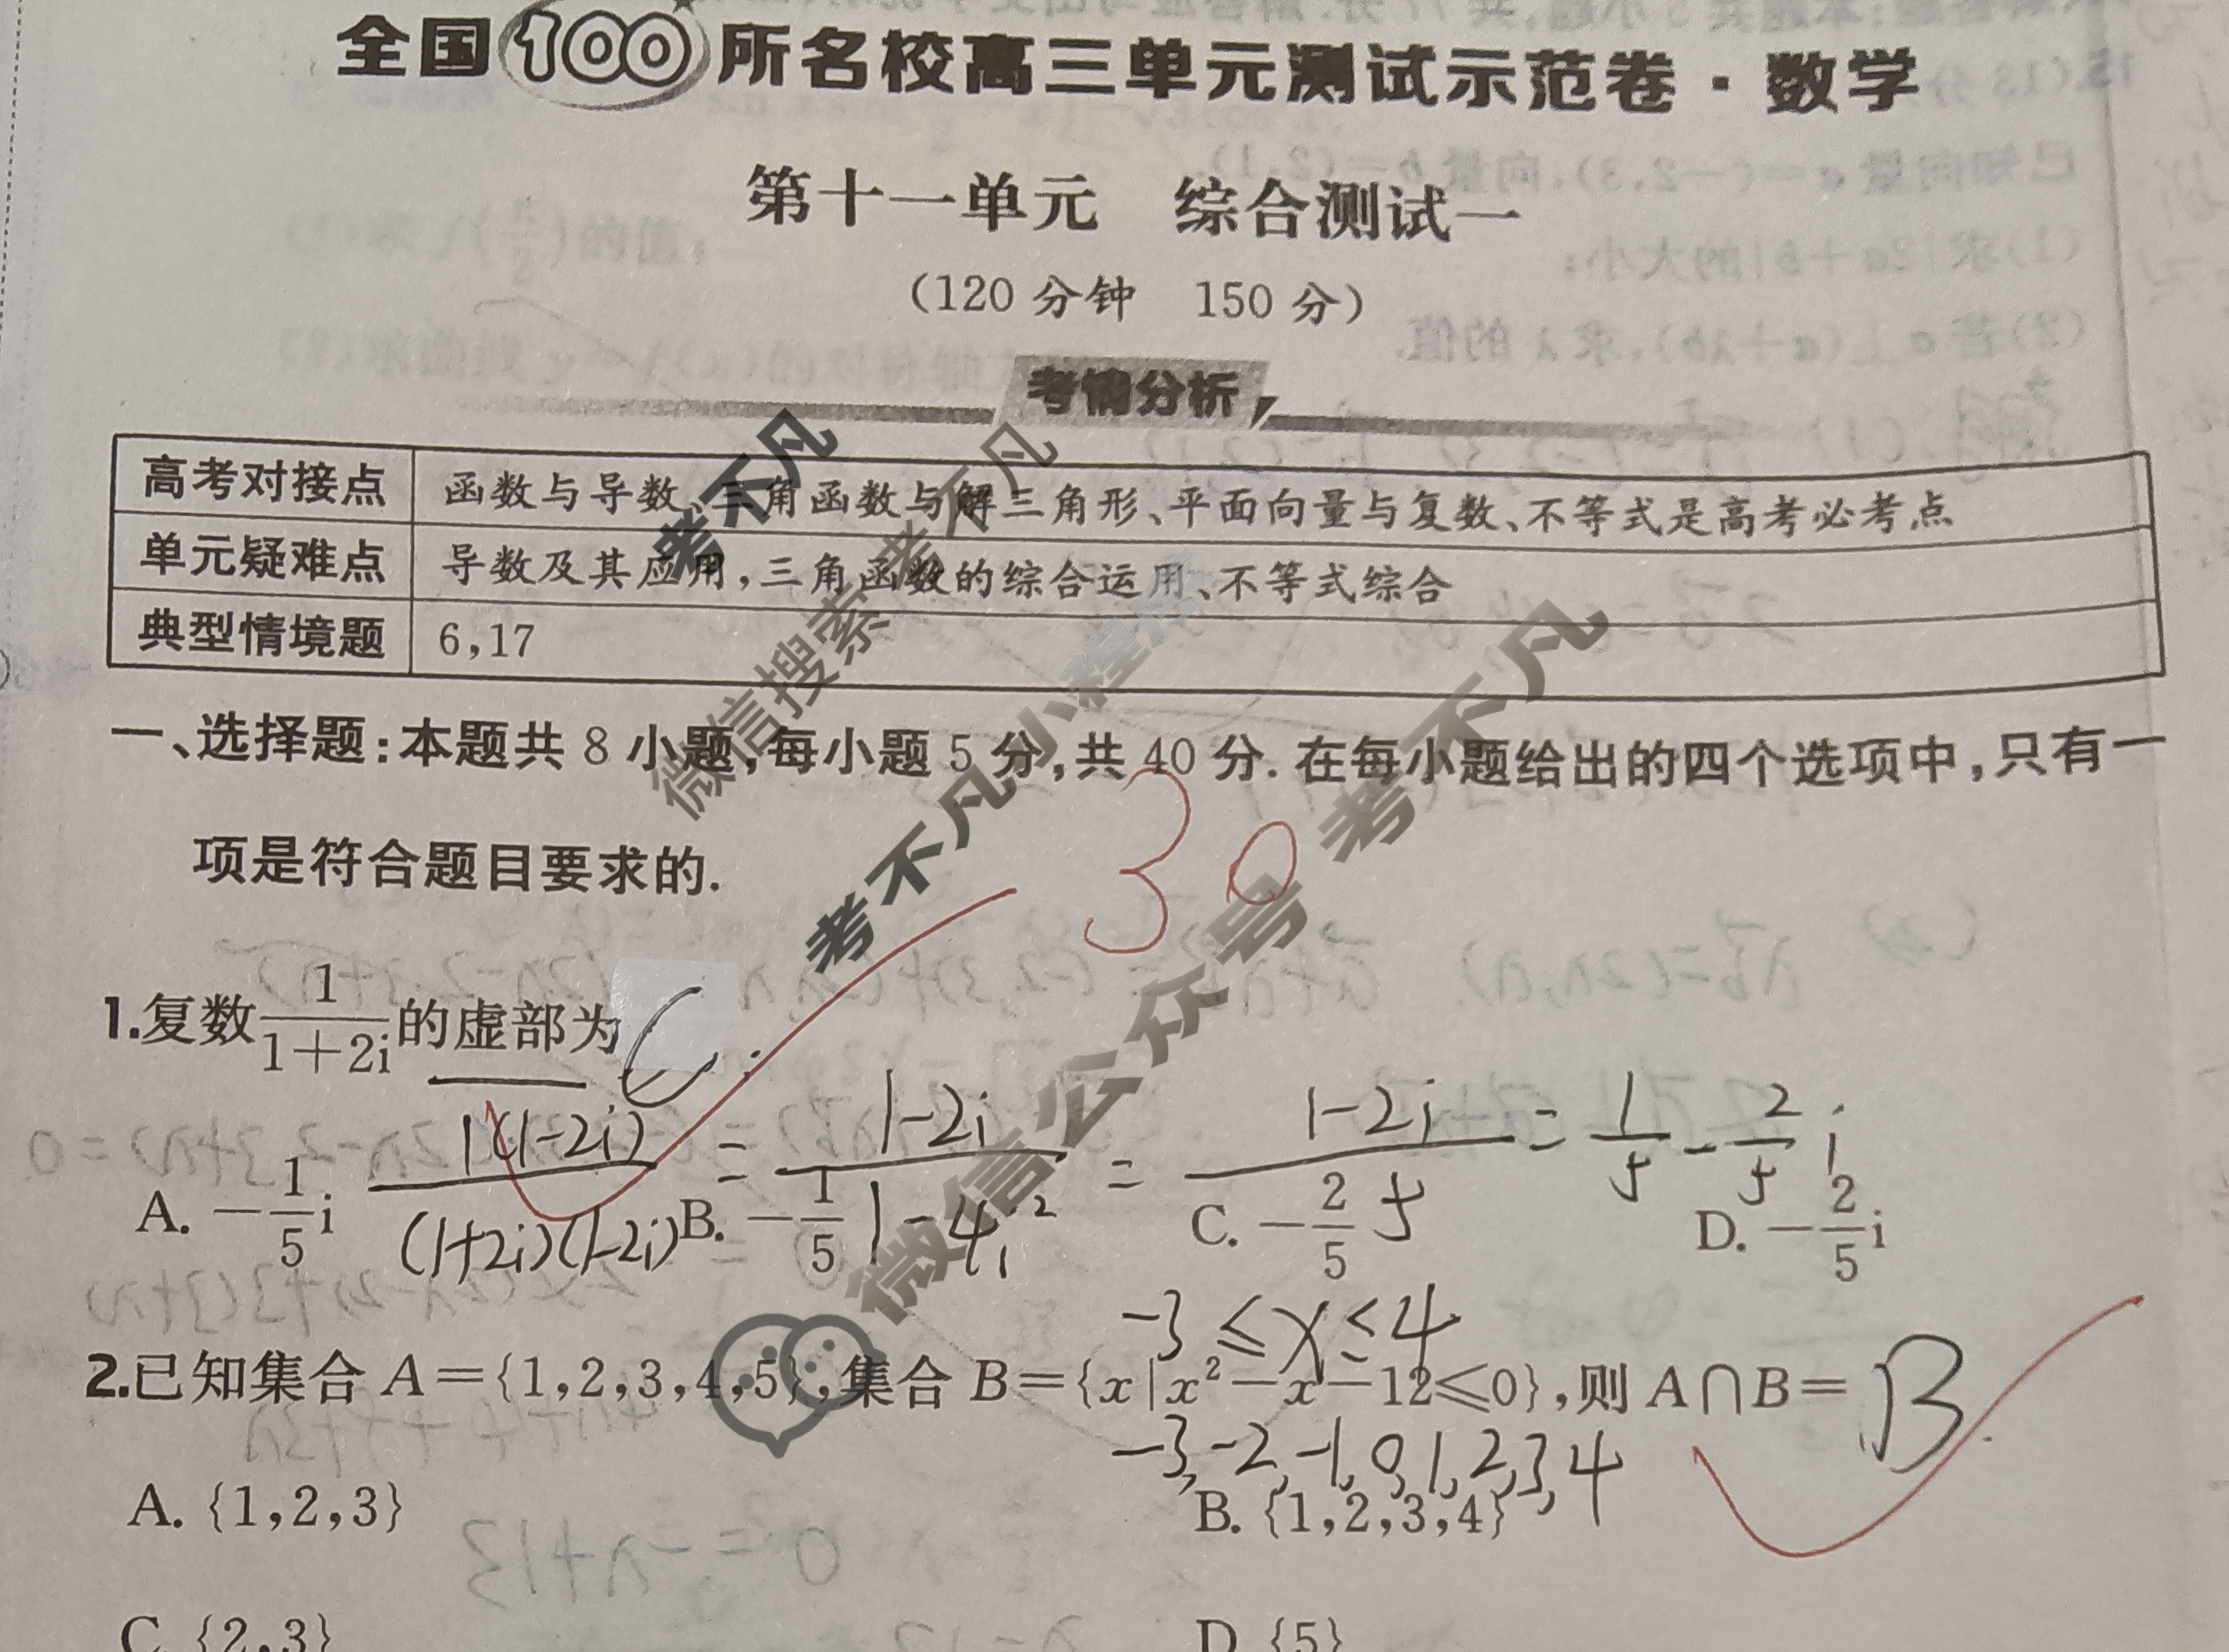 全国100所名校高三单元测试示范卷·数学
第十一单元 综合测试一
(120分钟 150分)
考情分析
高考对接点 函数与导数、三角函数与解三角形、平面向量与复数、不等式是高考必考点
单元疑难点 导数及其应用,三角函数的综合运用、不等式综合
典型情境题 6,17
一、选择题:本题共8小题,每小题5分,共40分.在每小题给出的四个选项中,只有一
项是符合题目要求的.
30
1.复数1/(1+2i)的虚部为 C .
1(1-2i)/(1+2i)(1-2i) = 1-2i/1-4i² = 1-2i/5 = 1/5 - 2/5 i
A. -1/5 i B. -1/5 C. -2/5 D. -2/5 i
-3≤x≤4
2.已知集合A={1,2,3,4,5},集合B={x|x²-x-12≤0},则A∩B= B .
-3,-2,-1,0,1,2,3,4
A. {1,2,3} B. {1,2,3,4}
C. {2,3} D. {5}
考不凡
微信搜索 考不凡
考不凡小程序
微信公众号 考不凡